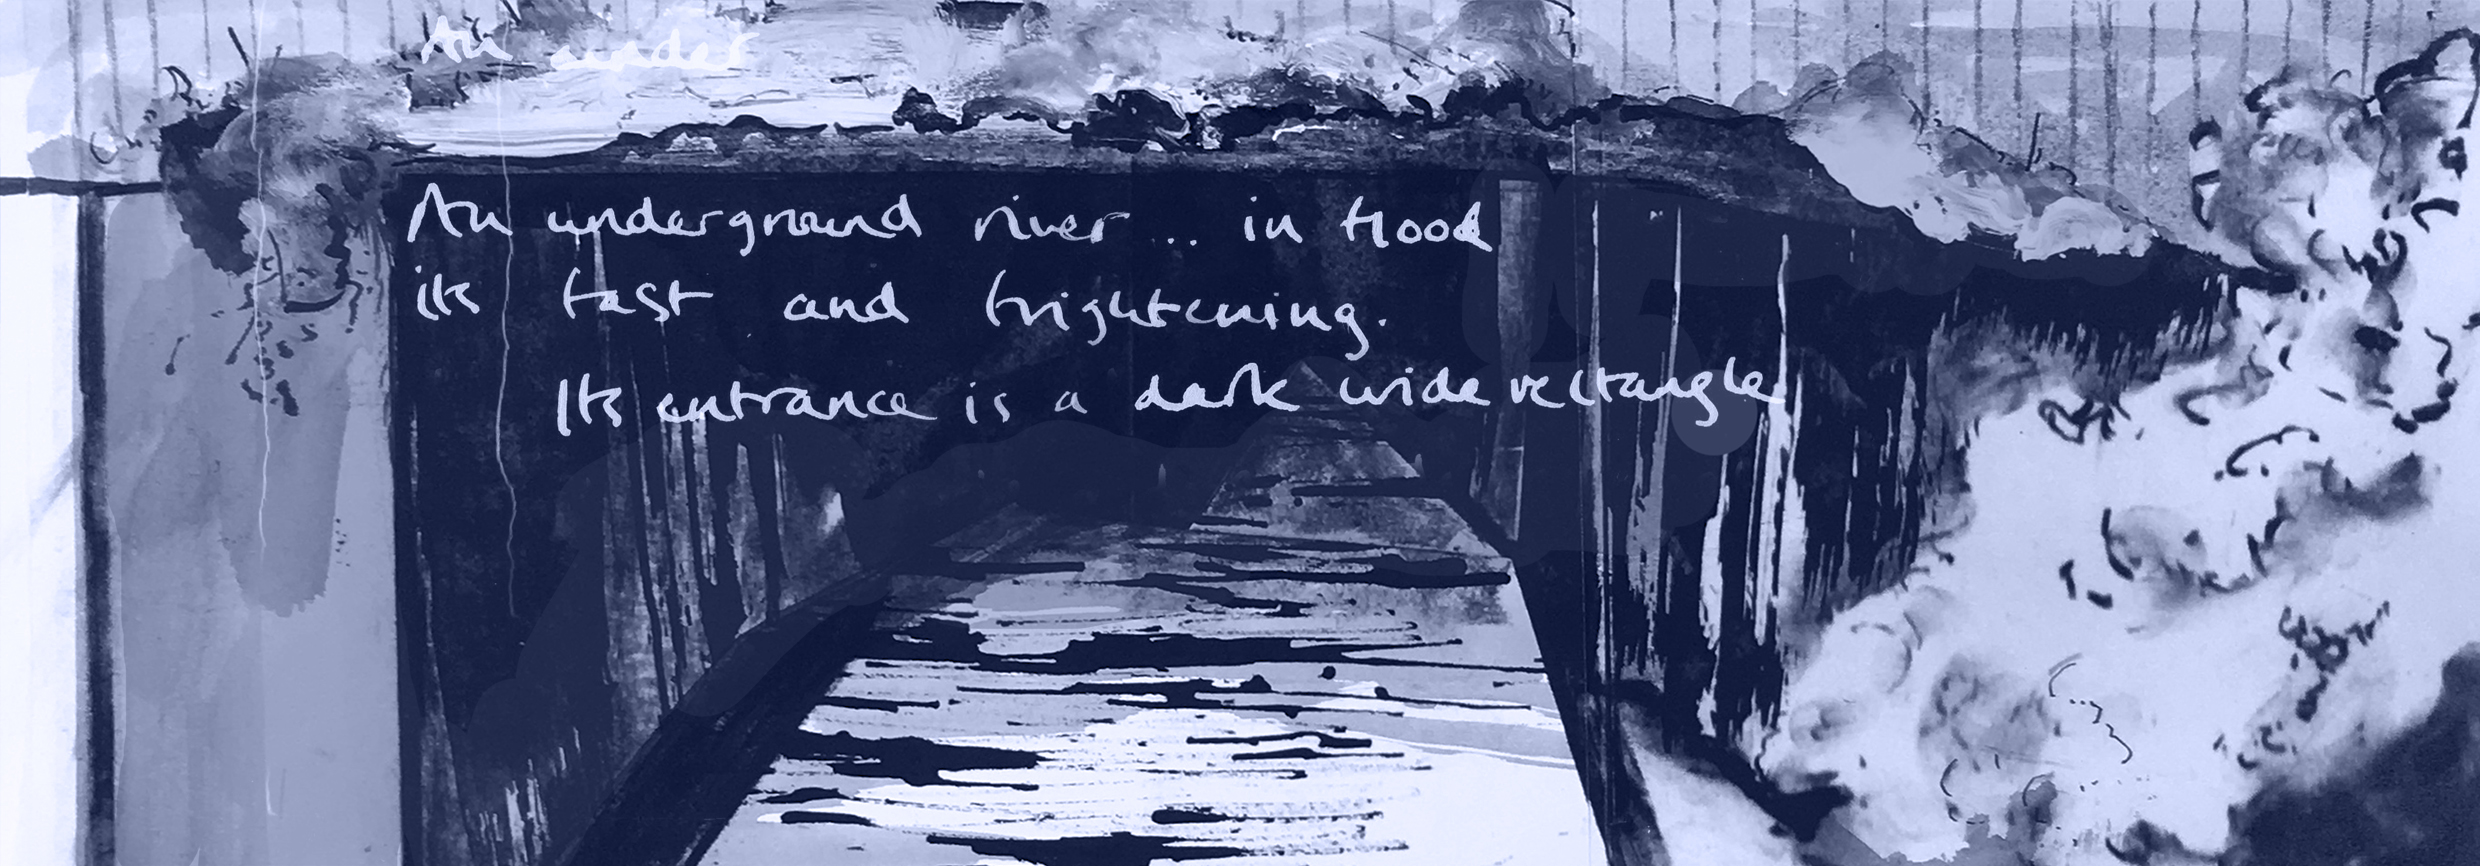 An under
An underground river .. in flood
its fast and frightening.
Its entrance is a dark wide rectangle